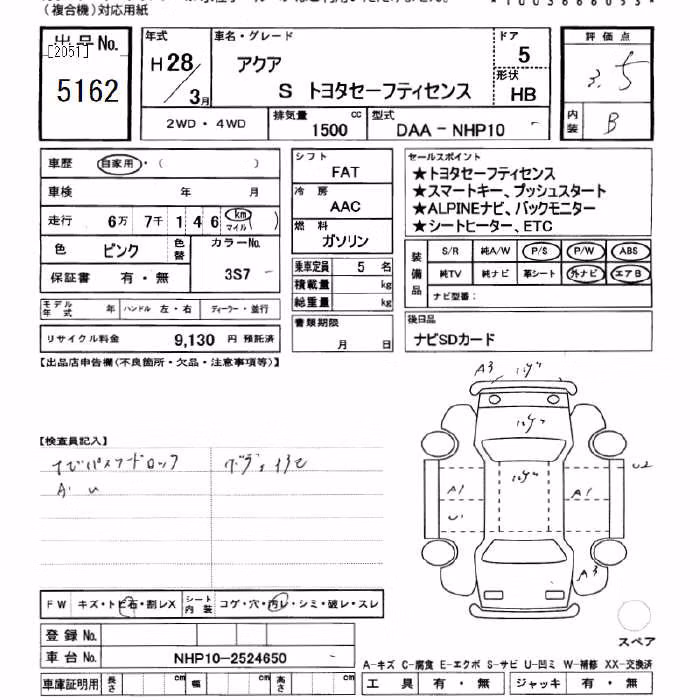 (複合機)対応用紙
出品No.
[2051]
5162
年式
H 28 / 3月
車名・グレード
アクア
S トヨタセーフティセンス
ドア
5
形状
HB
評価点
3.5
内装
B
2WD・4WD
排気量
1500 cc
型式
DAA - NHP10 -
車歴 自家用・( )
車検 年 月
走行 6万 7千 1 4 6 km マイル ( )
色 ピンク 色替 カラーNo. 3S7 -
保証書 有・無
モデル年式 年 ハンドル 左・右 ディーラー・並行
リサイクル料金 9,130 円 預託済
シフト
FAT
冷房
AAC
燃料
ガソリン
乗車定員 5 名
積載量 kg
総重量 kg
書類期限
月 日
セールスポイント
★トヨタセーフティセンス
★スマートキー、プッシュスタート
★ALPINEナビ、バックモニター
★シートヒーター、ETC
装備品
S/R 純A/W P/S P/W ABS
純TV 純ナビ 革シート 外ナビ エアB
ナビ型番:
後日品
ナビSDカード
【出品店申告欄(不良箇所・欠品・注意事項等)】
【検査員記入】
ナビパスワードロック
A. U
F W キズ・トビ石・割レX シート内装 コゲ・穴・汚レ・シミ・破レ・スレ
登録No.
車台No. NHP10-2524650
車庫証明用 長さ cm 幅 cm 高さ cm
A3
A1
U1
A1
U2
A3
スペア
A-キズ C-腐食 E-エクボ S-サビ U-凹ミ W-補修 XX-交換済
工具 有・無 ジャッキ 有・無